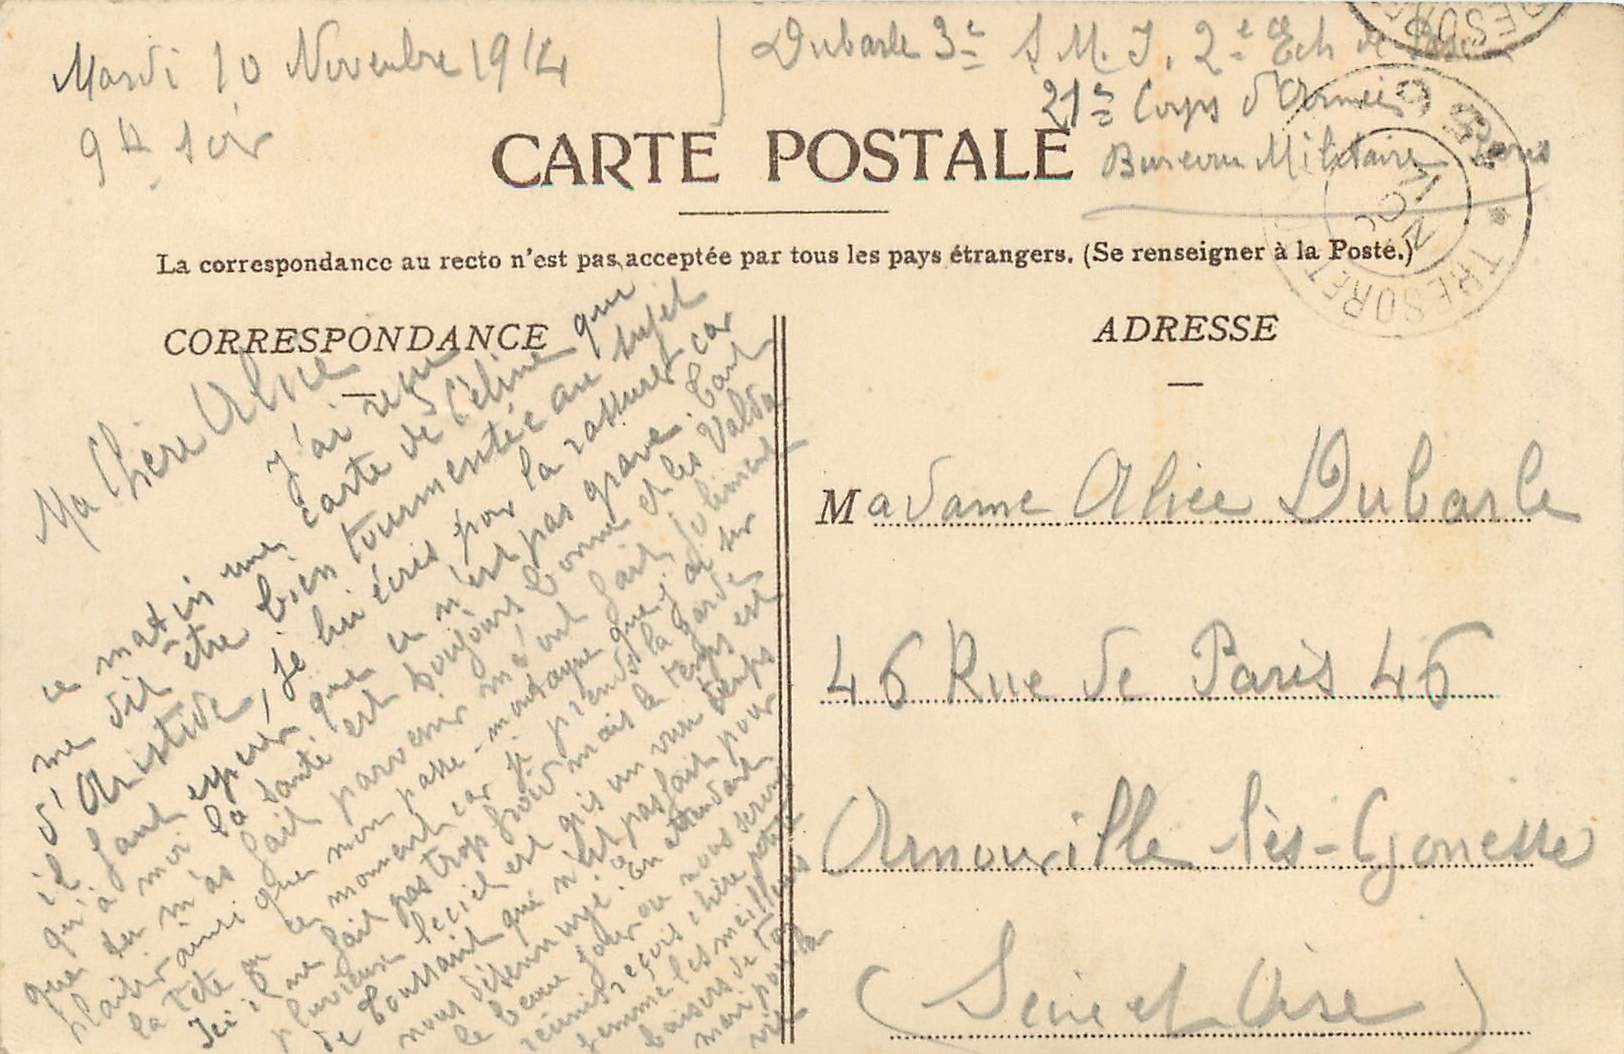 Mardi 10 Novembre 1914
9 H soir
Dubarle 3e S. M. I. 2e Ech de
21e Corps d'Armée
Bureau Militaire Paris
CARTE POSTALE
La correspondance au recto n'est pas acceptée par tous les pays étrangers. (Se renseigner à la Poste.)
CORRESPONDANCE
Ma Chère Alice
J'ai reçu
ce matin une carte de Céline qui
me dit être bien tourmentée au sujet
d'Aristide, je lui écris pour la rassurer car
il faut espérer que ce n'est pas grave. Tant
qu'à moi la santé est toujours bonne et les Valda
que tu m'as fait parvenir m'ont fait joliment
plaisir ainsi que mon passe-montagne que j'ai sur
la tête en ce moment car je prends la garde
Ici il ne fait pas trop froid mais le temps est
pluvieux le ciel est gris un vrai temps
de Toussaint qui n'est pas fait pour
nous désennuyé. En attendant
le beau jour où nous serons
réunis reçois chère petite
femme les meilleurs
baisers de ton
mari pour la
vie
ADRESSE
Madame Alice Dubarle
46 Rue de Paris 46
Arnouville lès-Gonesse
(Seine et Oise)
TRESOR ET
NOV
TRESOR